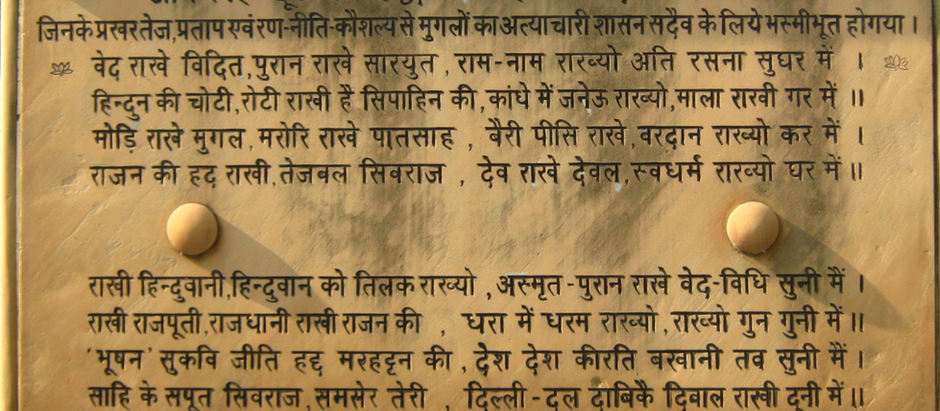 जिनके प्रखर तेज,प्रताप एवं रण-नीति-कौशल्य से मुगलों का अत्याचारी शासन सदैव के लिये भस्मीभूत होगया ।
वेद राखे विदित,पुरान राखे सारयुत , राम-नाम राख्यो अति रसना सुघर में ।
हिन्दुन की चोटी,रोटी राखी है सिपाहिन की,कांधे में जनेऊ राख्यो,माला राखी गर में ॥
मोड़ि राखे मुगल,मरोरि राखे पातसाह , बैरी पीसि राखे,वरदान राख्यो कर में ।
राजन की हद राखी,तेजबल सिवराज , देव राखे देवल,स्वधर्म राख्यो घर में ॥
राखी हिन्दुवानी,हिन्दुवान को तिलक राख्यो ,अस्मृत-पुरान राखे वेद-विधि सुनी मैं ।
राखी राजपूती,राजधानी राखी राजन की , धरा में धरम राख्यो,राख्यो गुन गुनी में ॥
'भूषन' सुकवि जीति हद्द मरहट्टन की ,देश देश कीरति बखानी तव सुनी मैं ।
साहि के सपूत सिवराज,समसेर तेरी , दिल्ली-दल दाबिकै दिवाल राखी दुनी में ॥